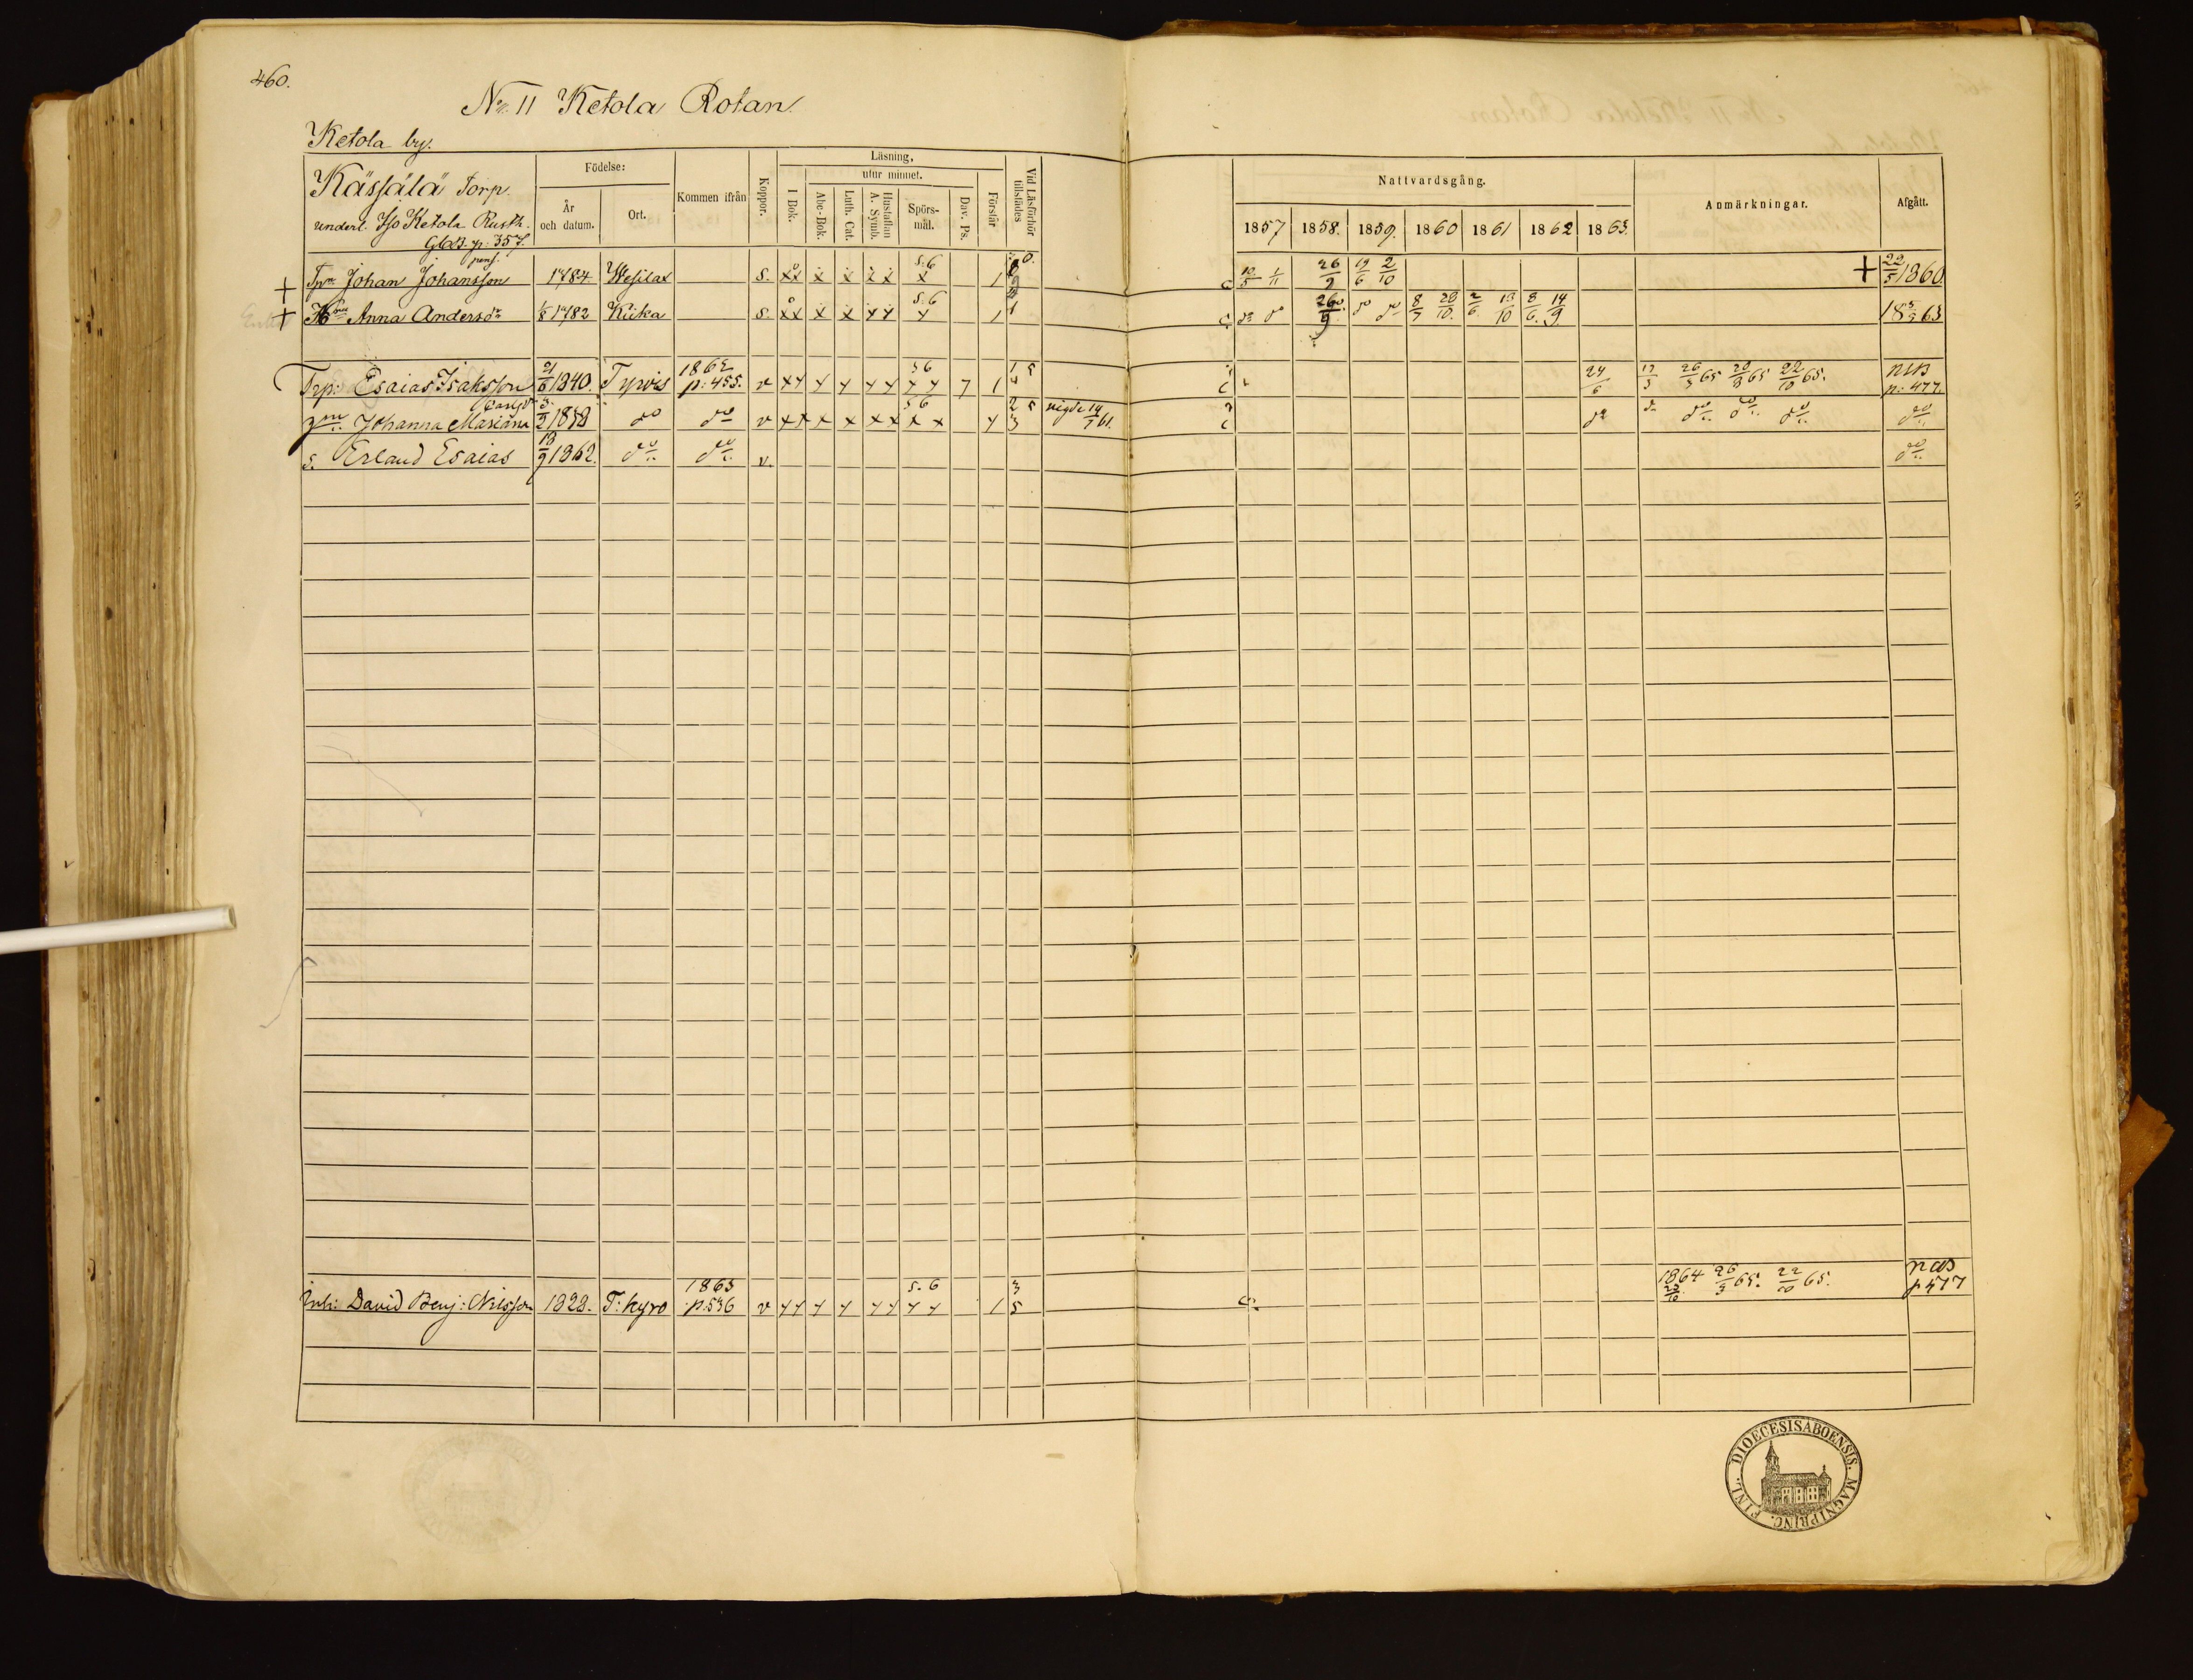 460.
No. 11 Ketola Rotan.
Ketola by.
Kässälä Torp.
underl. Iso Ketola Rusth.
Gl.B. p: 357.
Födelse:
År och datum.
Ort.
Kommen ifrån
Koppor.
Läsning,
utur minnet.
I Bok.
Abc-Bok.
Luth. Cat.
Hustaflan A. Symb.
Spörs-mål.
Dav. Ps.
Förstår
Vid Läsförhör tillstädes
Nattvardsgång.
1857 1858. 1859. 1860 1861 1862 1863.
Anmärkningar.
Afgått.
+ Johan Johansson 1784 Wesilax s. xx x x x x s.6 x 1 10/5 1/11 26/9 19/6 2/10 + 22/5 1860.
+ Anna Andersdr 1782 Kiika s xx x x x x s.6 x 1 do do 26/9 do do 8/7 28/10 2/6 13/10 8/6 14/9 18 63
Trp: Esaias Isaksson 21/6 1840. Tyrvis 1862 p: 455. v 56 7 1 24/6 17/3 26/3 65 20/8 65 22/10 65. NCB p: 477.
Johanna Mariana Carlsdr 3/2 1838 do do v 56 vigde 14/7 61. do do do do do do
s. Erland Esaias 13/9 1862. do do v. do
Inh: David Benj: Nilsson 1828. T: Kyro 1863 p: 536 v s. 6 1 3 5 1864 23/10 26/3 65. 22/10 65. NCB p 477
DIOECESIS ABOENSIS. MAGNI PRINC. FINL.